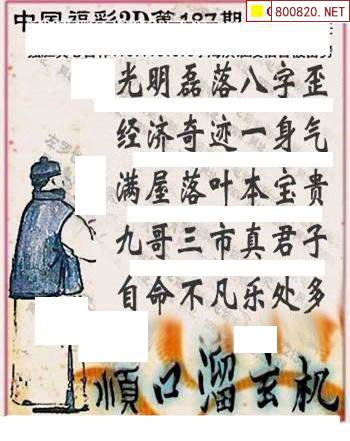 中国福彩3D第187期
800820.NET
光明磊落八字歪
经济奇迹一身气
满屋落叶本宝贵
九哥三市真君子
自命不凡乐处多
顺口溜玄机